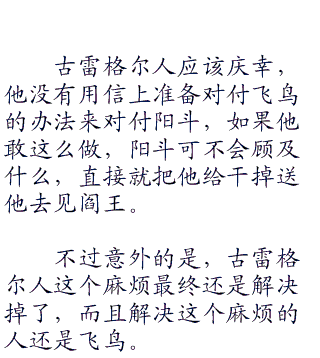 古雷格尔人应该庆幸，
他没有用信上准备对付飞鸟
的办法来对付阳斗，如果他
敢这么做，阳斗可不会顾及
什么，直接就把他给干掉送
他去见阎王。
不过意外的是，古雷格
尔人这个麻烦最终还是解决
掉了，而且解决这个麻烦的
人还是飞鸟。